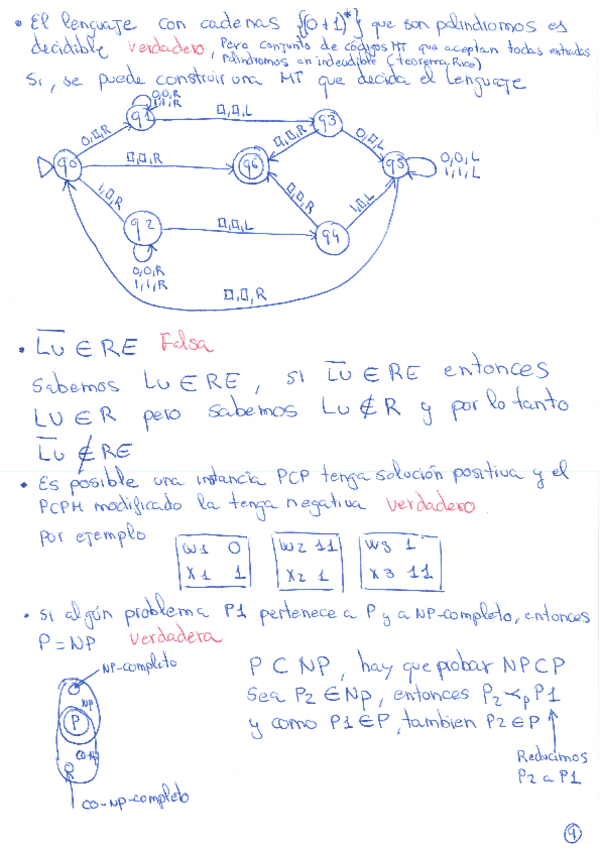 • El lenguaje con cadenas {(0+1)*} que son palindromos es
decidible verdadero, Pero conjunto de códigos MT que aceptan todas entradas
Palindromos en indecidible (teorema Rice)
Si, se puede construir una MT que decida el lenguaje
0,0,R
1,1,R
q1
□,□,L
q3
0,□,R
□,□,R
0,□,L
q0
□,□,R
q6
q5
0,0,L
1,1,L
1,□,R
□,□,R
1,□,L
q2
□,□,L
q4
0,0,R
1,1,R
□,□,R
• L̅u̅ ∈ RE Falsa
Sabemos Lu ∈ RE, si L̅u̅ ∈ RE entonces
Lu ∈ R pero sabemos Lu ∉ R y por lo tanto
L̅u̅ ∉ RE
• Es posible una instancia PCP tenga solución positiva y el
PCPM modificado la tenga negativa verdadero.
Por ejemplo
w1 0
x1 1
w2 11
x2 1
w3 1
x3 11
• Si algún problema P1 pertenece a P y a NP-completo, entonces
P=NP verdadera
NP-completo
NP
P
CO-NP
CO-NP-completo
P ⊂ NP, hay que probar NP⊂P
Sea P2 ∈ NP, entonces P2 ≺p P1
y como P1 ∈ P, tambien P2 ∈ P
Reducimos
P2 a P1
9